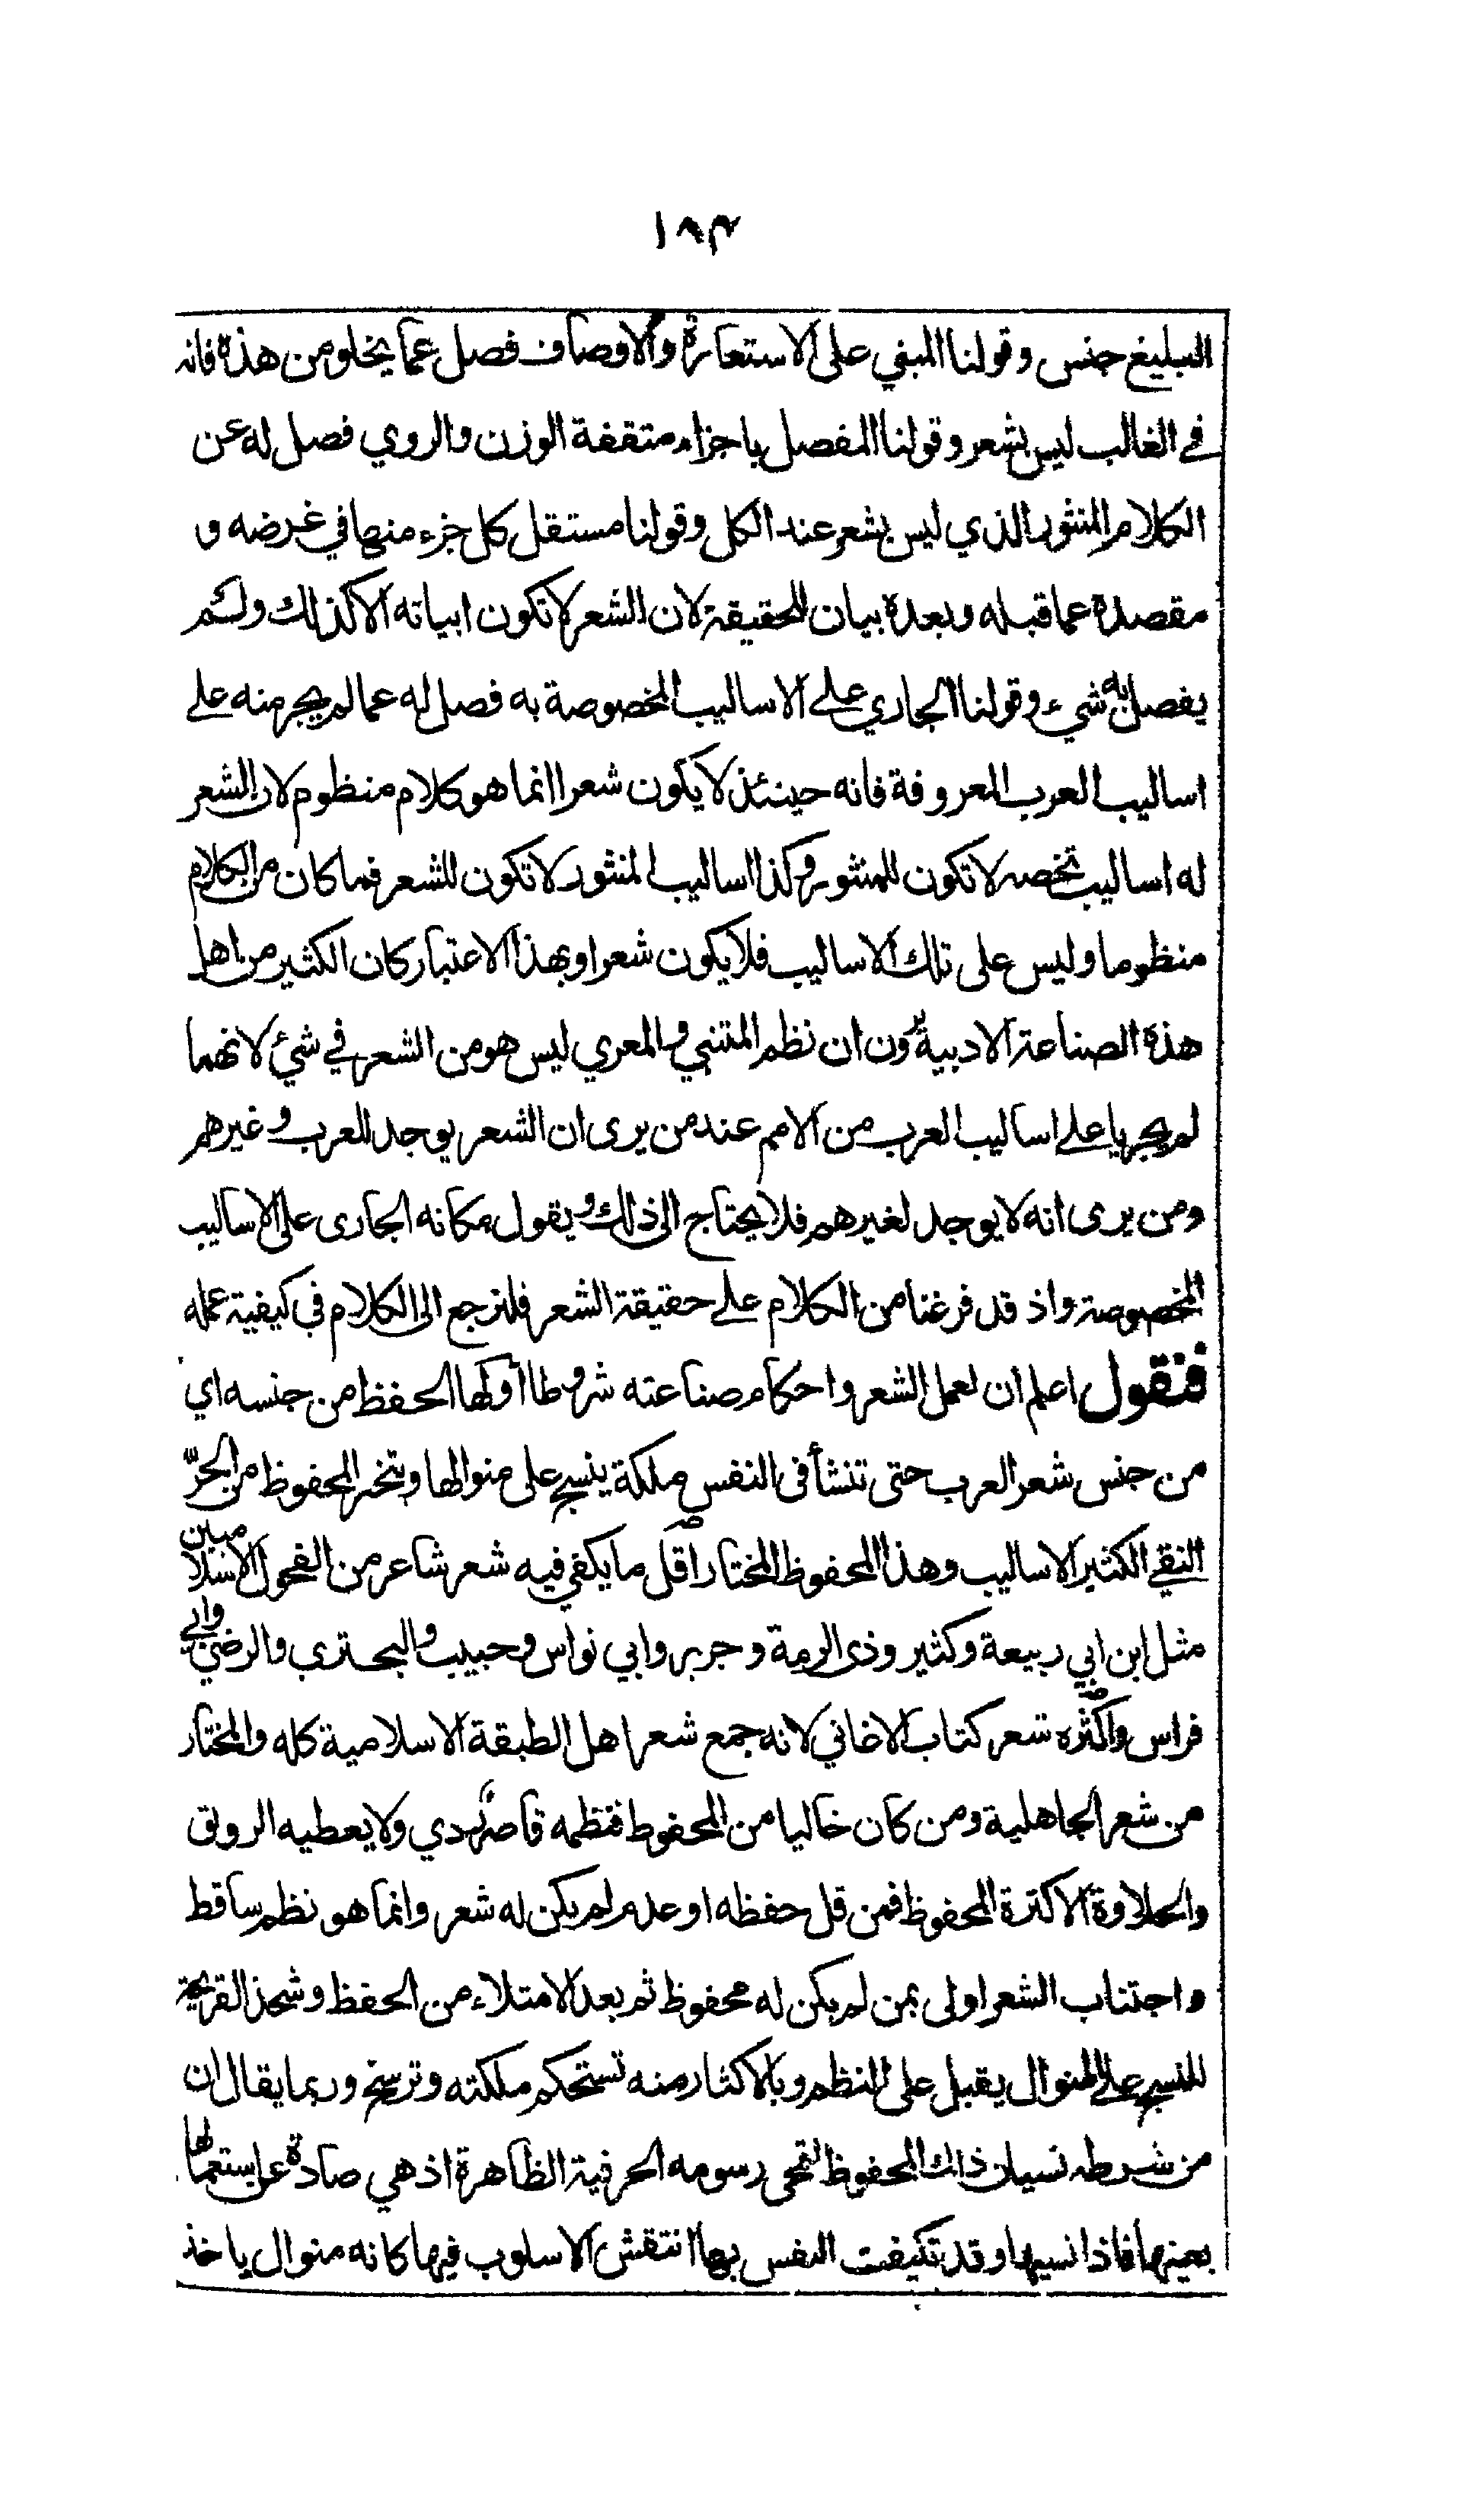 ١٨٣
البليغ جنس وقولنا المبني على الاستعارة والاوصاف فصل عما يخلو من هذه فانه
في الغالب ليس بشعر وقولنا المفصل باجزاء متفقة الوزن والروي فصل له عن
الكلام المنثور الذي ليس بشعر عند الكل وقولنا مستقل كل جزء منها في غرضه و
مقصده عما قبله وبعده بيان للحقيقة لان الشعر لا تكون ابياته الا كذلك ولم
يفصل به شيء وقولنا الجاري على الاساليب المخصوصة به فصل له عما لم يجر منه على
اساليب العرب المعروفة فانه حينئذ لا يكون شعرا انما هو كلام منظوم لان الشعر
له اساليب تخصه لا تكون للمنثور وكذا اساليب المنثور لا تكون للشعر فما كان من الكلام
منظوما وليس على تلك الاساليب فلا يكون شعرا وبهذا الاعتبار كان الكثير من اهل
هذه الصناعة الادبية يرون ان نظم المتنبي والمعري ليس هو من الشعر في شيء لانهما
لم يجريا على اساليب العرب من الامم عند من يرى ان الشعر يوجد للعرب وغيرهم
ومن يرى انه لا يوجد لغيرهم فلا يحتاج الى ذلك ويقول مكانه الجاري على الاساليب
المخصوصة واذ قد فرغنا من الكلام على حقيقة الشعر فلنرجع الى الكلام في كيفية عمله
فنقول اعلم ان لعمل الشعر واحكام صناعته شروطا اولها الحفظ من جنسه اي
من جنس شعر العرب حتى تنشأ في النفس ملكة ينسج على منوالها ويتخير المحفوظ من الحرّ
النقي الكثير الاساليب وهذا المحفوظ المختار اقل ما يكفي فيه شعر شاعر من الفحول الاسلاميين
مثل ابن ابي ربيعة وكثير وذي الرمة وجرير وابي نواس وحبيب والبحتري والرضي وابي
فراس واكثره شعر كتاب الاغاني لانه جمع شعر اهل الطبقة الاسلامية كله والمختار
من شعر الجاهلية ومن كان خاليا من المحفوظ فنظمه قاصر ردي ولا يعطيه الرونق
والحلاوة الا كثرة المحفوظ فمن قل حفظه او عدم لم يكن له شعر وانما هو نظم ساقط
واجتناب الشعر اولى بمن لم يكن له محفوظ ثم بعد الامتلاء من الحفظ وشحذ القريحة
للنسج على المنوال يقبل على النظم وبالاكثار منه تستحكم ملكته وترسخ وربما يقال ان
من شرطه نسيان ذلك المحفوظ لتمحى رسومه الحرفية الظاهرة اذ هي صادة عن استعمالها
بعينها فاذا نسيها وقد تكيفت النفس بها انتقش الاسلوب فيها كانه منوال ياخذ